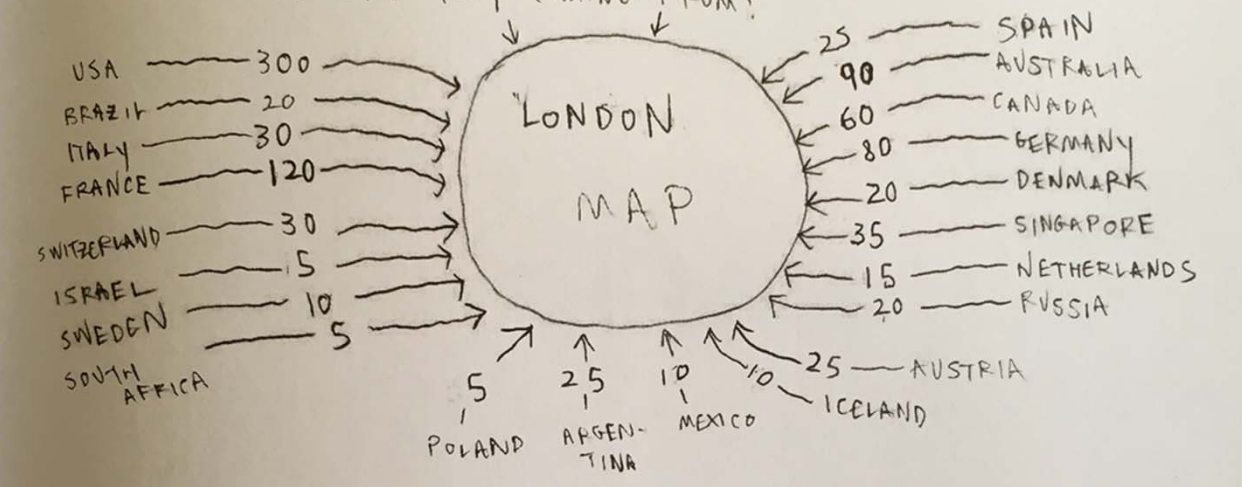 FROM?
LONDON
MAP
USA 300
BRAZIL 20
ITALY 30
FRANCE 120
SWITZERLAND 30
ISRAEL 5
SWEDEN 10
SOUTH AFRICA 5
25 SPAIN
90 AUSTRALIA
60 CANADA
80 GERMANY
20 DENMARK
35 SINGAPORE
15 NETHERLANDS
20 RUSSIA
25 AUSTRIA
10 ICELAND
10
MEXICO
25
ARGEN-
TINA
5
POLAND